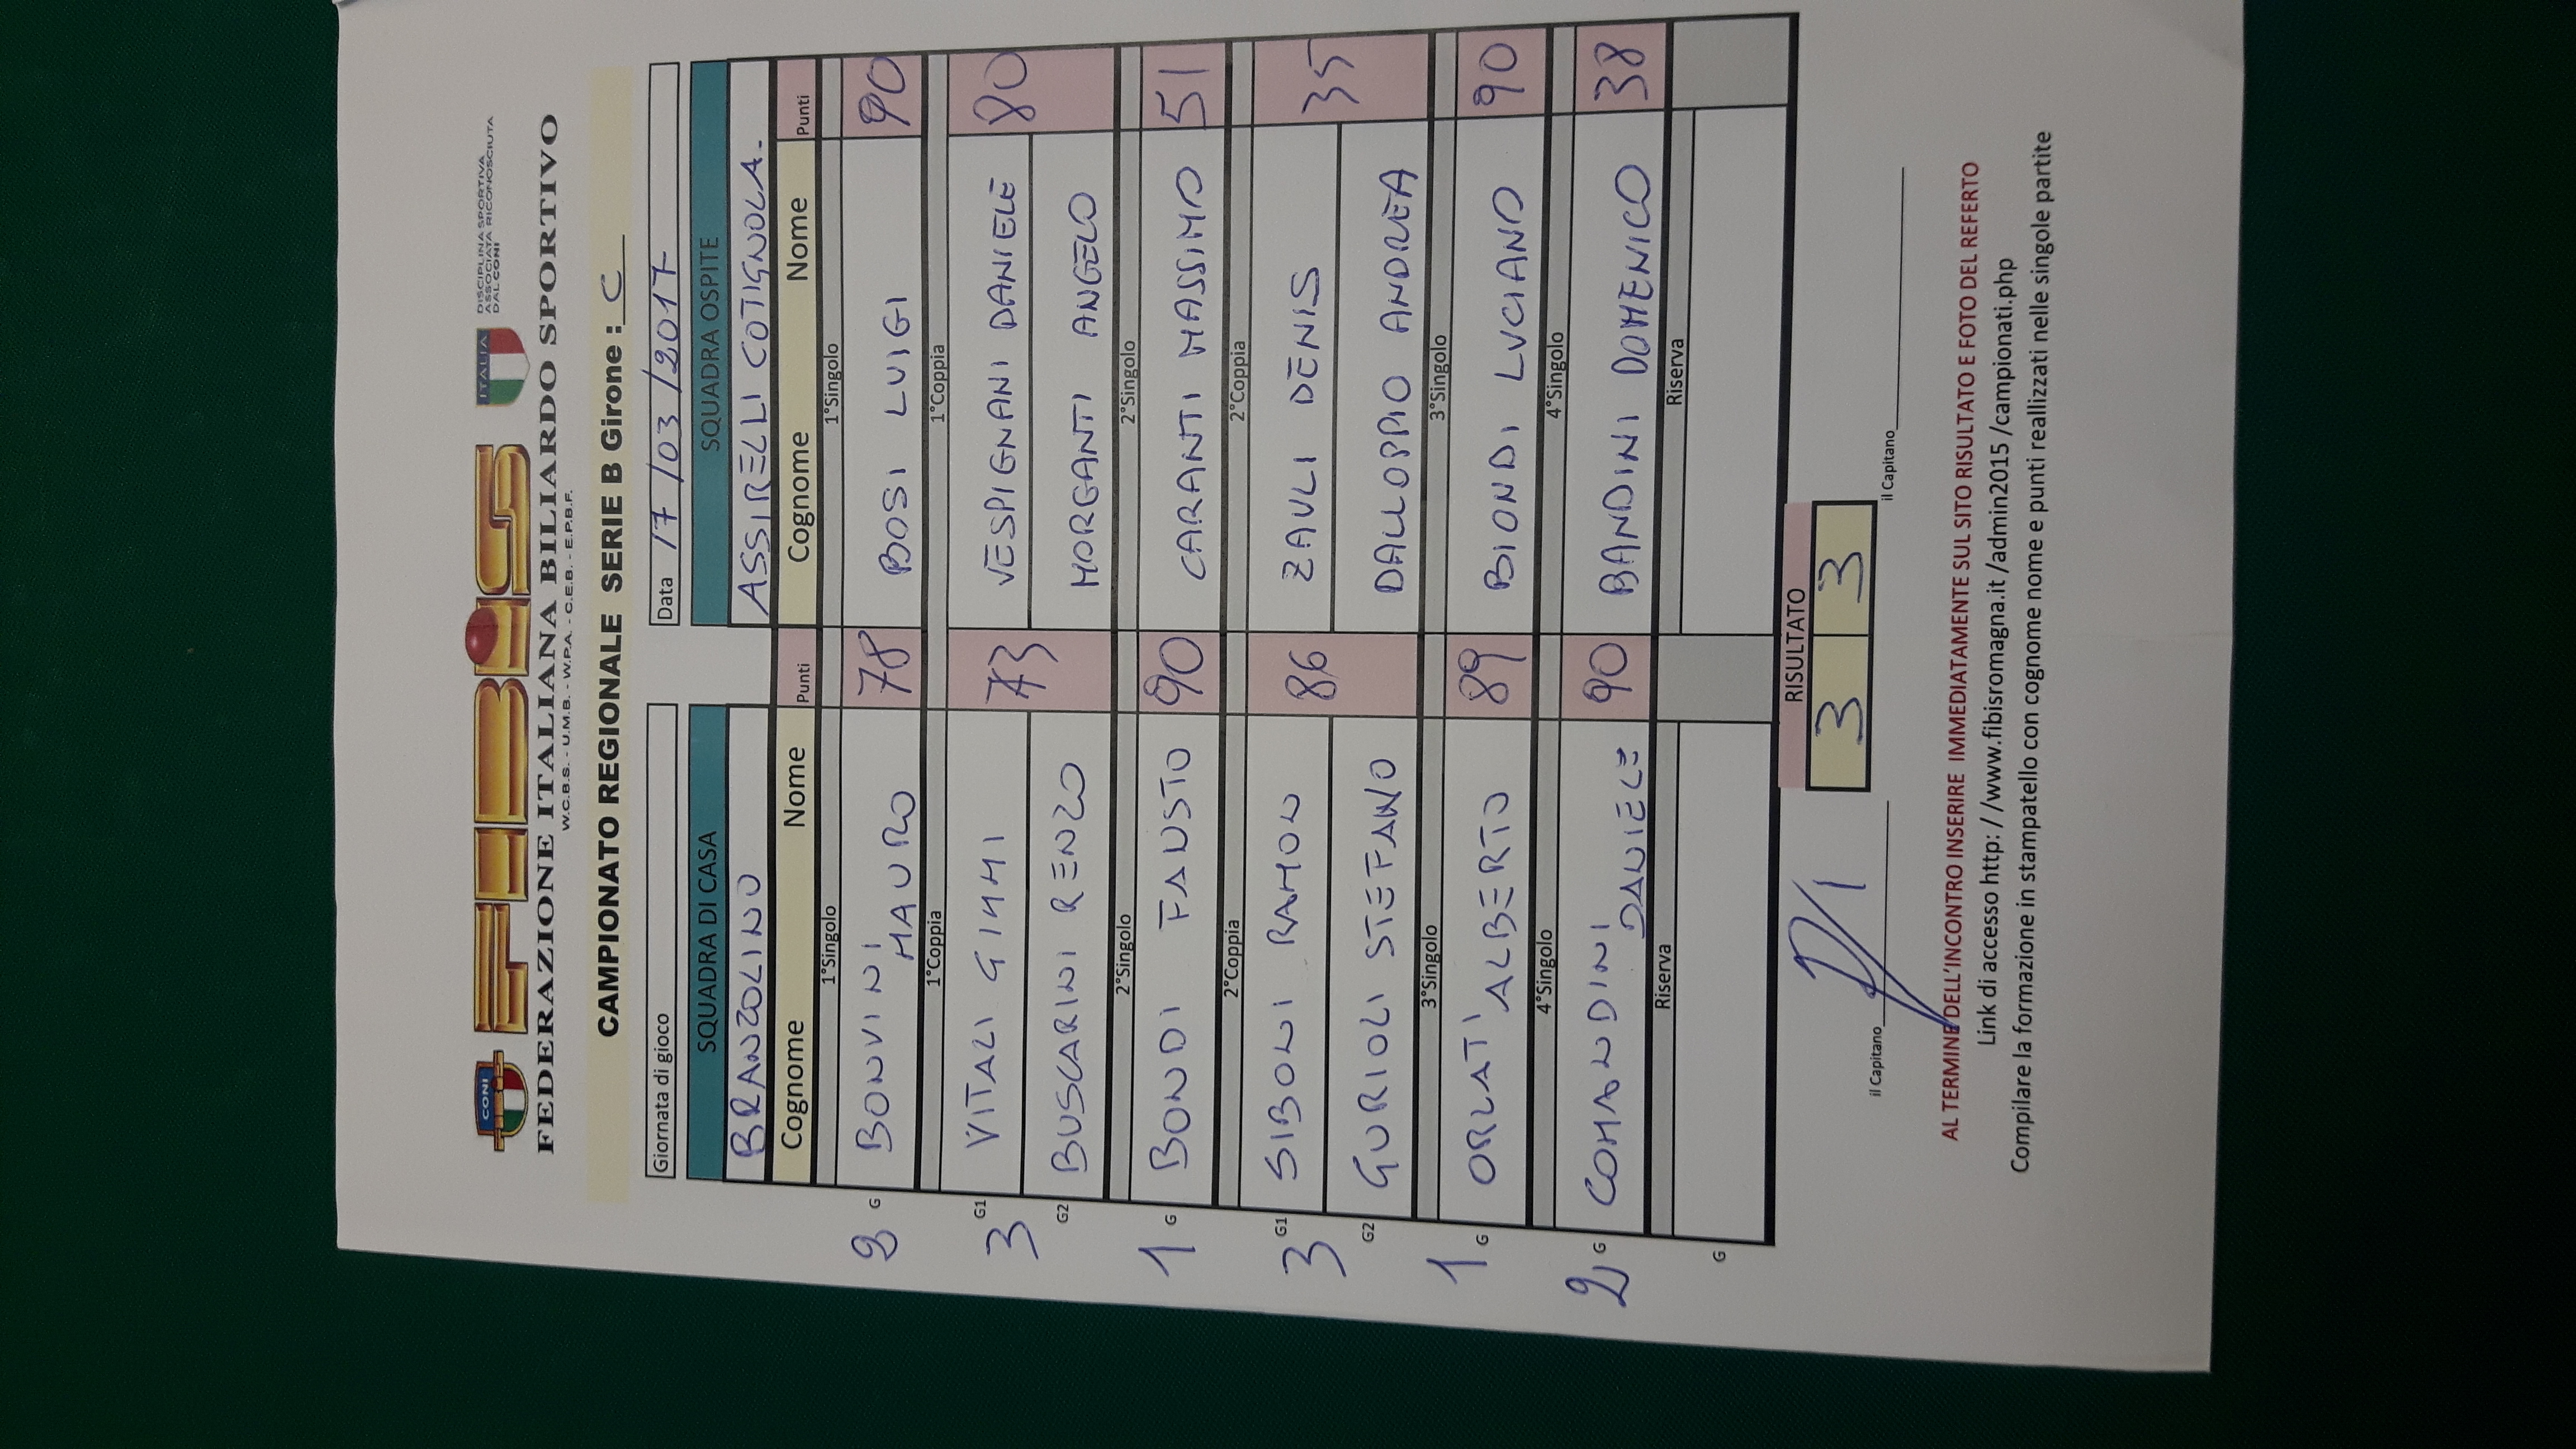 CONI
FIBIS
ITALIA
DISCIPLINA SPORTIVA
ASSOCIATA RICONOSCIUTA
DAL CONI
FEDERAZIONE ITALIANA BILIARDO SPORTIVO
W.C.B.S. - U.M.B. - W.P.A. - C.E.B. - E.P.B.F.
CAMPIONATO REGIONALE SERIE B Girone : C
Giornata di gioco
Data 17/03/2017
SQUADRA DI CASA SQUADRA OSPITE
BRANZOLINO ASSIRELLI COTIGNOLA.
Cognome Nome Punti Cognome Nome Punti
1°Singolo 1°Singolo
G BONVINI MAURO 78 BOSI LUIGI 90
1°Coppia 1°Coppia
3 G1 VITALI GIMMI 73 VESPIGNANI DANIELE 80
G2 BUSCARINI RENZO MORGANTI ANGELO
2°Singolo 2°Singolo
1 G BONDI FAUSTO 90 CARANTI MASSIMO 51
2°Coppia 2°Coppia
3 G1 SIBONI RAMON 86 ZAULI DENIS 35
G2 GURIOLI STEFANO DALLOPPIO ANDREA
3°Singolo 3°Singolo
1 G ORLATI ALBERTO 89 BIONDI LUCIANO 90
4°Singolo 4°Singolo
2 G COMANDINI DANIELE 90 BANDINI DOMENICO 38
Riserva Riserva
G
RISULTATO
3 3
il Capitano il Capitano
AL TERMINE DELL'INCONTRO INSERIRE IMMEDIATAMENTE SUL SITO RISULTATO E FOTO DEL REFERTO
Link di accesso http: / /www.fibisromagna.it /admin2015 /campionati.php
Compilare la formazione in stampatello con cognome nome e punti reallizzati nelle singole partite